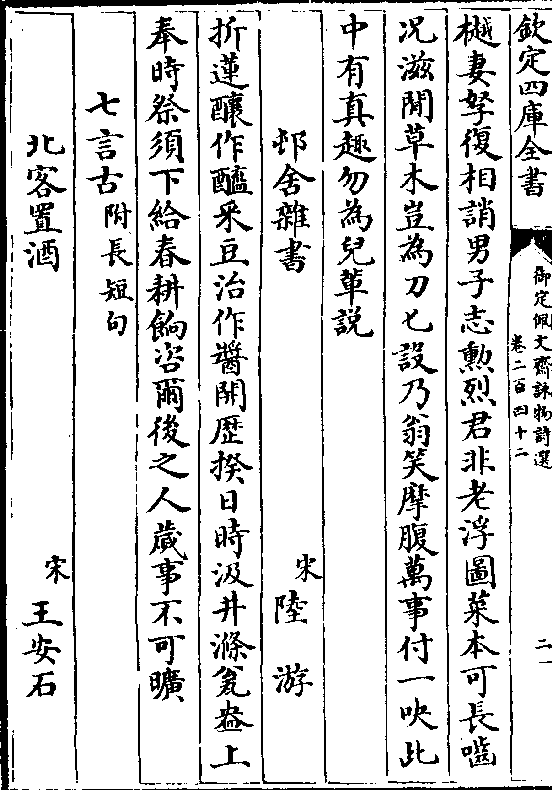 欽定四庫全書
御定佩文齋詠物詩選
卷二百四十二
二
樾妻孥復相誚男子志勲烈君非老浮圖菜本可長嚙
况滋聞草木豈為刀匕設乃翁笑摩腹萬事付一吷此
中有真趣勿為兒輩説
邨舍雜書 宋 陸游
折蓮釀作醯采豆治作醬開歴揆日時汲井滌瓮盎上
奉時祭須下給春耕餉咨爾後之人嵗事不可曠
七言古 附長短句
北客置酒 宋 王安石